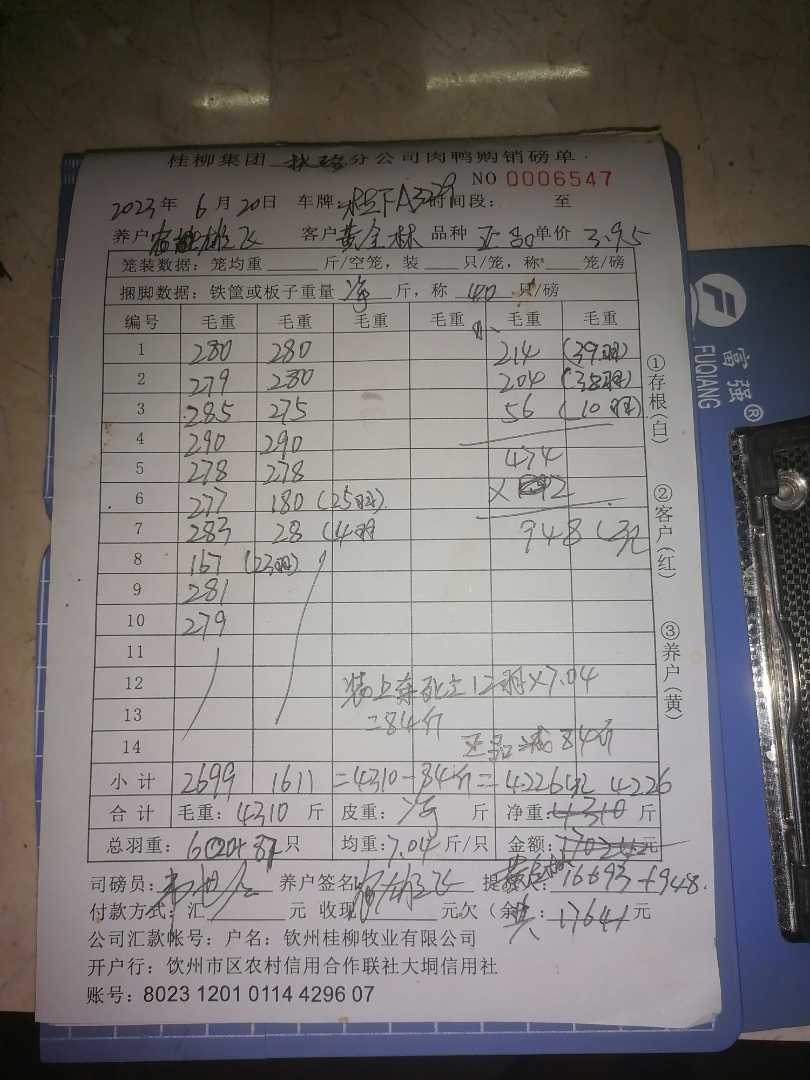 桂柳集团 分公司肉鸭购销磅单
NO 0006547
2023年 6月20日 车牌: 时间段: 至
养户 客户 黄全林 品种 正品 单价 3.95
笼装数据:笼均重 斤/空笼,装 只/笼,称 笼/磅
捆脚数据:铁筐或板子重量 净 斤,称 40 只/磅
编号 毛重 毛重 毛重 毛重 毛重 毛重
1 280 280 214 (39羽)
2 279 280 204 (38羽)
3 285 275 56 (10羽)
4 290 290
5 278 278 474
6 277 180 (25羽) × 2
7 283 28 (4羽 948 (元
8 167 (23羽)
9 281
10 279
11
12 装上车死亡12羽×7.04
13 =84斤
14 正品减84斤
小计 2699 1611 =4310-84斤=4226 4226
合计 毛重:4310斤 皮重:净 斤 净重:4310斤
总羽重: 只 均重:7.04斤/只 金额: 元
司磅员: 养户签名 16693+948.
付款方式:汇 元 收现 元欠(余 共:17641元
公司汇款帐号:户名:钦州桂柳牧业有限公司
开户行:饮州市区农村信用合作联社大垌信用社
账号:8023 1201 0114 4296 07
①存根(白)
②客户(红)
③养户(黄)
富强®
FUQIANG